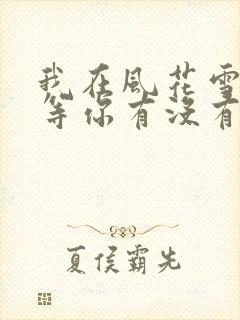 我在風花雪
等你有沒有
夏侯霸先